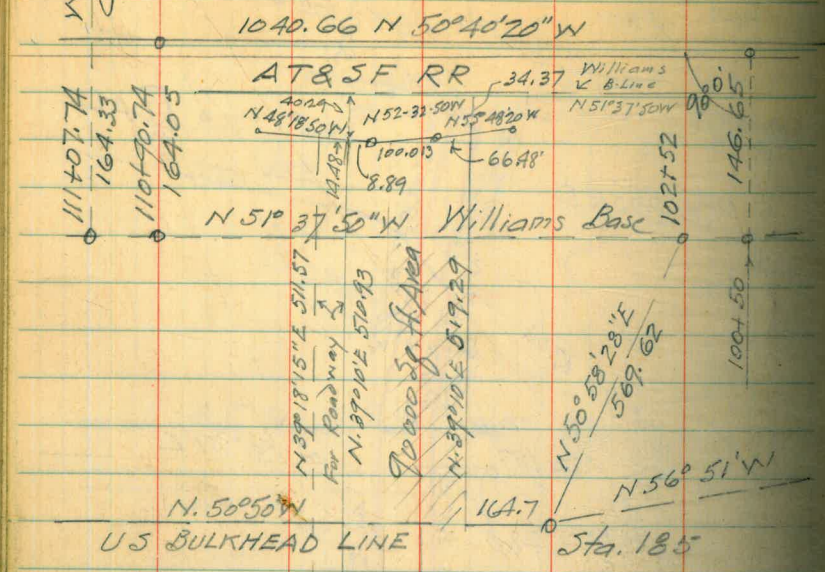 1040.66 N 50°40'20" W
AT&SF RR
34.37
Williams
B-Line
N51°37'50W
40.29
N 48°18'50W
N52-32-50W
N55°48'20W
100.013
66.48'
8.89
14.48
111+07.74
164.33
110+90.74
164.05
102+52
146.65
N 51° 37'50"W Williams Base
100+50
N39°18'15"E 511.57
For Roadway
N.39°10'E 510.93
90000 Sq. ft. Area
N.39°10'E 519.29
N 50° 58' 28"E
569.62
N 56° 51' W
N. 50°50'W
164.7
US BULKHEAD LINE
Sta. 185